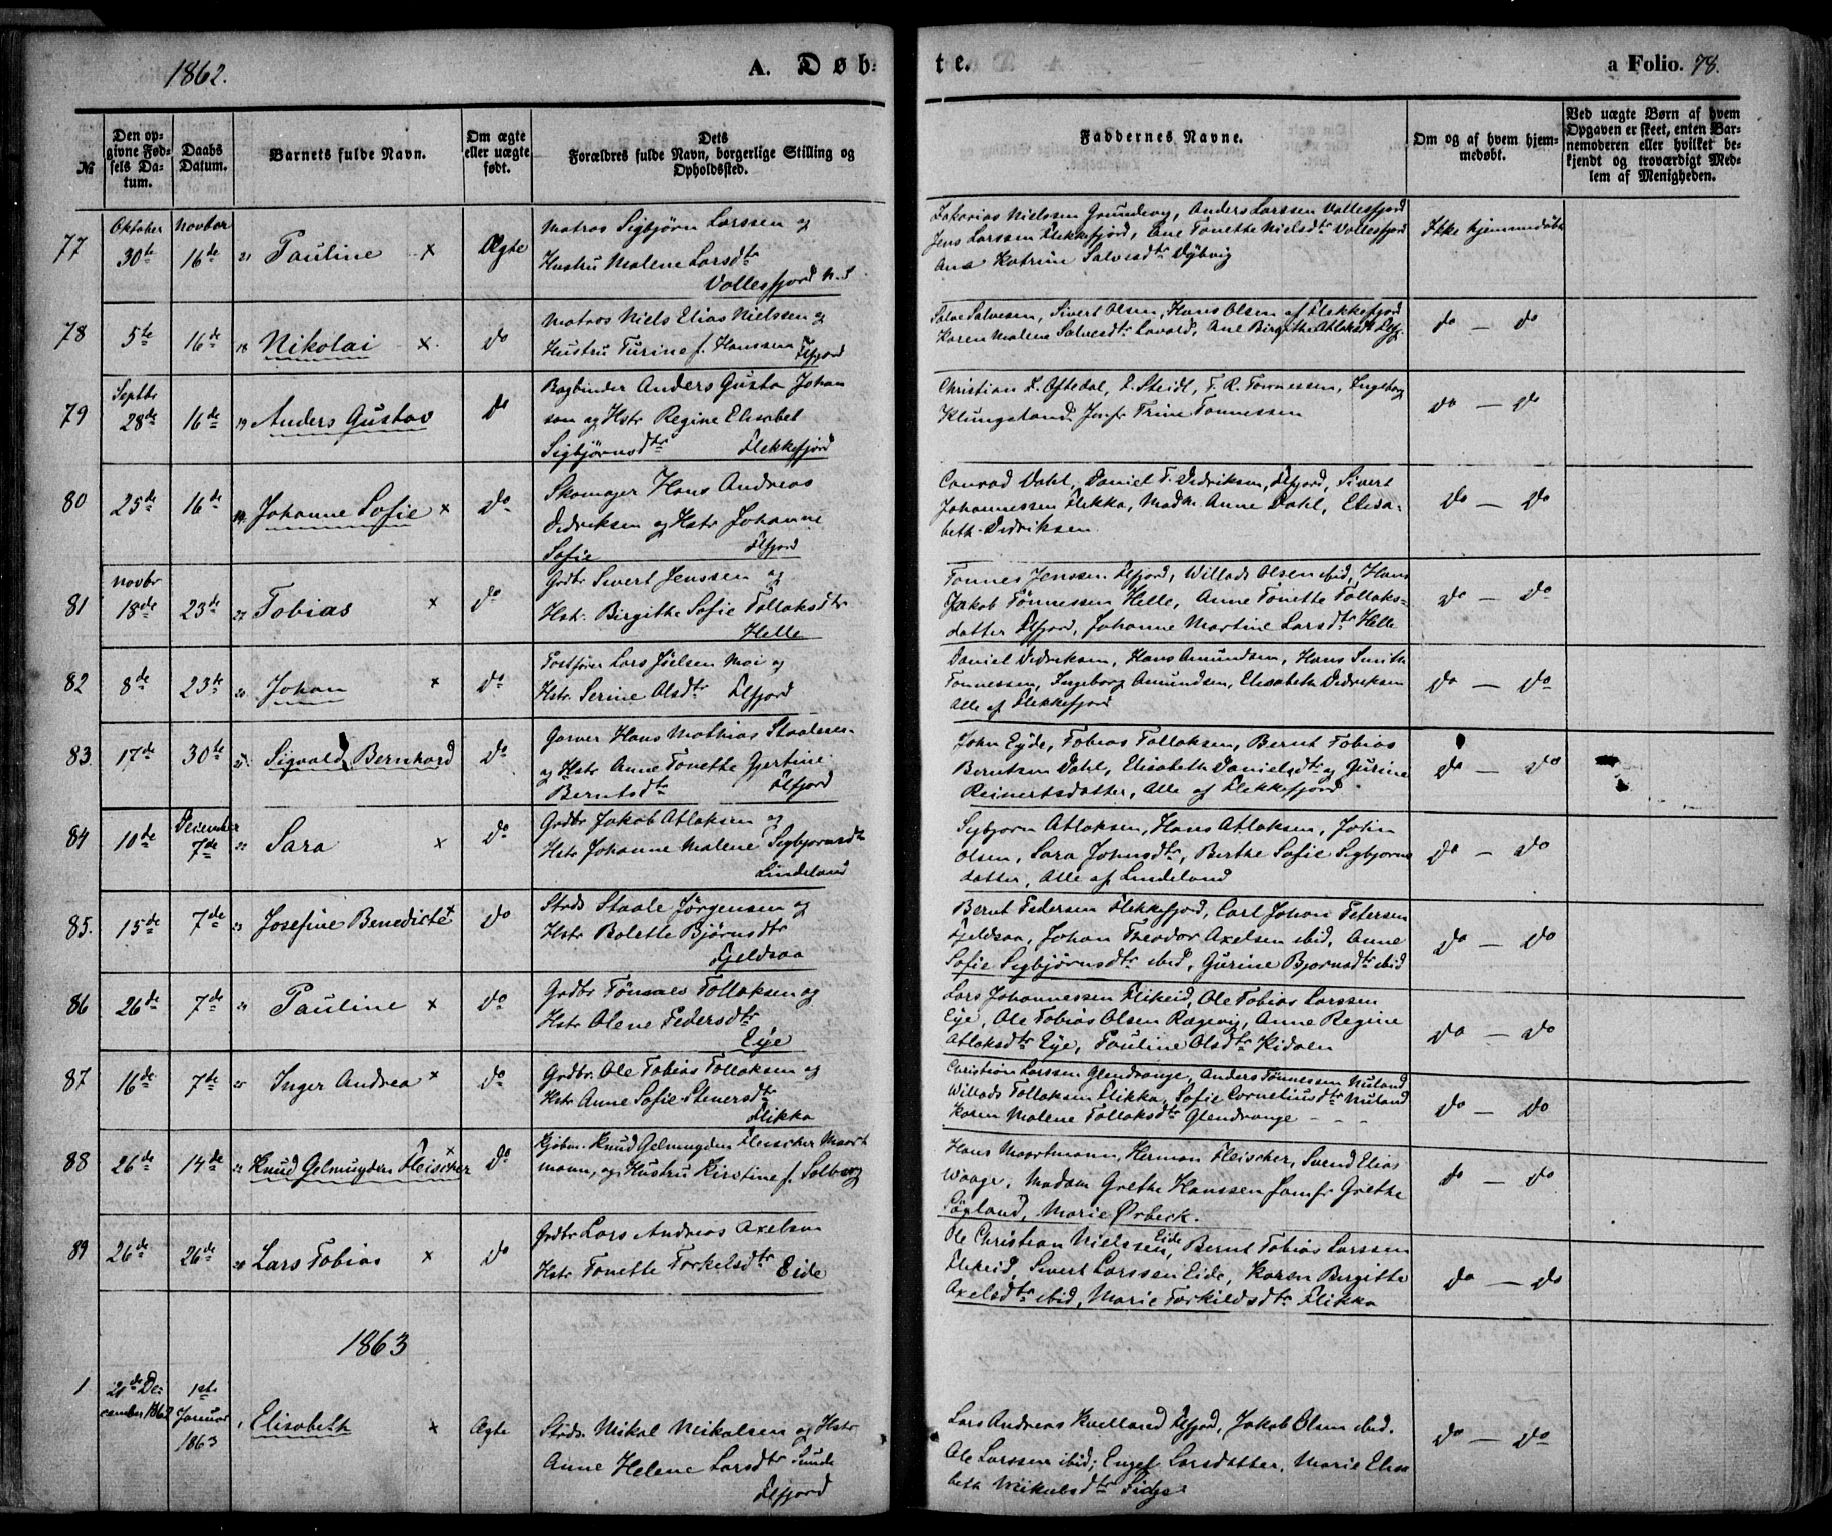 1862.
A. Døb-
te.
a Folio. 78.
№
Den op-
givne Fød-
sels Da-
tum.
Daabs
Datum.
Barnets fulde Navn.
Om ægte
eller uægte
født.
Dets
Forældres fulde Navn, borgerlige Stilling og
Opholdssted.
Faddernes Navne.
Om og af hvem hjem-
medøbt.
Ved uægte Børn af hvem
Opgaven er skeet, enten Bar-
nemoderen eller hvilket be-
kjendt og troværdigt Med-
lem af Menigheden.
77
Oktober
30te
Novbor
16de
21
Pauline ×
Ægte
Matros Sigbjörn Larssen og
Hustru Malene Larsdtr
Vollesfjord N.S
Zakarias Nielssen Grundevig, Anders Larssen Vollesfjord
Jens Larssen Flekkefjord, Ane Tonette Nielsdtr Vollesfjord
Ana Katrine Salvesdtr Dybvig
Ikke hjemmedøbt
78
5te
16de
18
Nikolai ×
do
Matros Niels Elias Nielssen og
Hustru Turine f. Hanssen Flfjord
Salve Salvesen, Sivert Olsen, Hans Olsen af Flekkefjord
Karen Malene Salvesdtr Lavold, Ane Birgithe Atlaksdtr Flfj.
do — do
79
Septbr
28de
16de
19
Anders Gustav
do
Bogbinder Anders Gusta Johan
son og Hstr Regine Elisabet
Sigbjørnsdtr Flekkefjord
Christian L. Aftedal, L. Steidt, T. R. Tönnessen, Ingeborg
Klungeland, Jomfr Trine Tonnessen
do — do
80
25de
16de
Johanne Sofie ×
do
Skomager Hans Andreas
Didriksen og Hstr Johanne
Sofie Flfjord
Conrad Dahl, Daniel T. Didriksen, Flfjord, Sivert
Johannessen Flikka, Madm. Anne Dahl, Elisa-
beth Didriksen
do — do
81
Novbr
18de
23de
Tobias ×
do
Grdbr Sivert Jenssen og
Hstr. Birgithe Sofie Tollaksdtr
Helle
Tonnes Jenssen Flfjord, Willads Olsen ibid, Hans
Jakob Tönnessen Helle, Anne Tonette Tollaks-
datter Flfjord, Johanne Martine Larsdtr Helle
do — do
82
8de
23de
20
Johan ×
do
Postfører Lars Joelsen Moi og
Hstr Serine Olsdtr Flfjord
Daniel Didriksen, Hans Amundsen, Hans Smith
Tonnessen, Ingeborg Amundsen, Elisabeth Didriksen
Alle af Flekkefjord
do — do
83.
17de
30te
21
Sigvald Bernhard
do
Garver Hans Mathias Staalesen
og Hstr Anne Tonette Gjertine
Berntsdtr Flfjord
John Eyde, Tobias Tollaksen, Bernt Tobias
Berntsen Dahl, Elisabeth Danielsdtr og Gurine
Reinertsdatter, Alle af Flekkefjord
do — do
84
10de
December
7de
22
Sara ×
do
Grdbr Jakob Atlaksen og
Hstr Johanne Malene Sigbjornsdtr
Lindeland
Sigbjorn Atlaksen, Hans Atlaksen, John
Olsen, Sara Johnsdtr, Berthe Sofie Sigbjorns
datter, Alle af Lindeland
do — do
85.
15de
7de
23
Josefine Benedicte ×
do
Strds Staale Jörgensen og
Hstr Bolette Bjørnsdtr
Fjeldsaa
Bernt Pedersen Flekkefjord, Carl Johan Petersen
Fjeldsaa, Johan Theodor Axelsen ibid, Anne
Sofie Sigbjørnsdtr ibid, Gurine Bjornsdtr ibid
do — do
86
26de
7de
24
Pauline ×
do
Grdbr Tönnes Tollaksen og
Hstr Olene Pedersdtr
Eye
Lars Johannessen Flikeid, Ole Tobias Larssen
Eye, Ole Tobias Olsen Rægevig, Anne Regine
Atlaksdtr Eye, Pauline Olsdtr Hidalen
do — do
87
16de
7de
25
Inger Andrea ×
do
Grdbr. Ole Tobias Tollaksen og
Hstr Anne Sofie Stenersdtr
Flikka
Christian Larssen Glendrange, Anders Tönnessen Nuland
Willads Tollaksen Flikka, Sofie Corneliusdtr Nuland
Karen Malene Tollaksdtr Glendrange
do — do
88
26de
14de
22
Knud Gelmuyden Fleischer ×
do
Kjøbm. Knud Gelmuyden Fleischer Maart
mann, og Hustru Kirstine f. Salberg
Hans Maartmann, Herman Fleischer, Svend Elias
Waage, Madam Grethe Hanssen Jomfr Grethe
Søgland, Marie Ørbeck.
do — do
89
26de
26de
20
Lars Tobias ×
do
Grdbr Lars Andreas Axelsen
Hstr Tonette Torkelsdtr Eide
Ole Christian Nielssen Eide, Bernt Tobias Larssen
Flikeid, Sivert Larssen Eide, Karen Birgitte
Axelsdtr ibid, Marie Torkildsdtr Flikka
do — do
1863
1
21de De-
cember 1862
1ste
Januar
1863
1
Elisabeth ×
Ægte
Strds. Mikal Mikalsen og Hstr
Anne Helene Larsdtr Sunde
Flfjord
Lars Andreas Kvelland Flfjord, Jakob Olsen ibid.
Ole Larssen ibid; Engel Larsdatter, Marie Elisa
beth Mikalsdtr Fidje
do — do